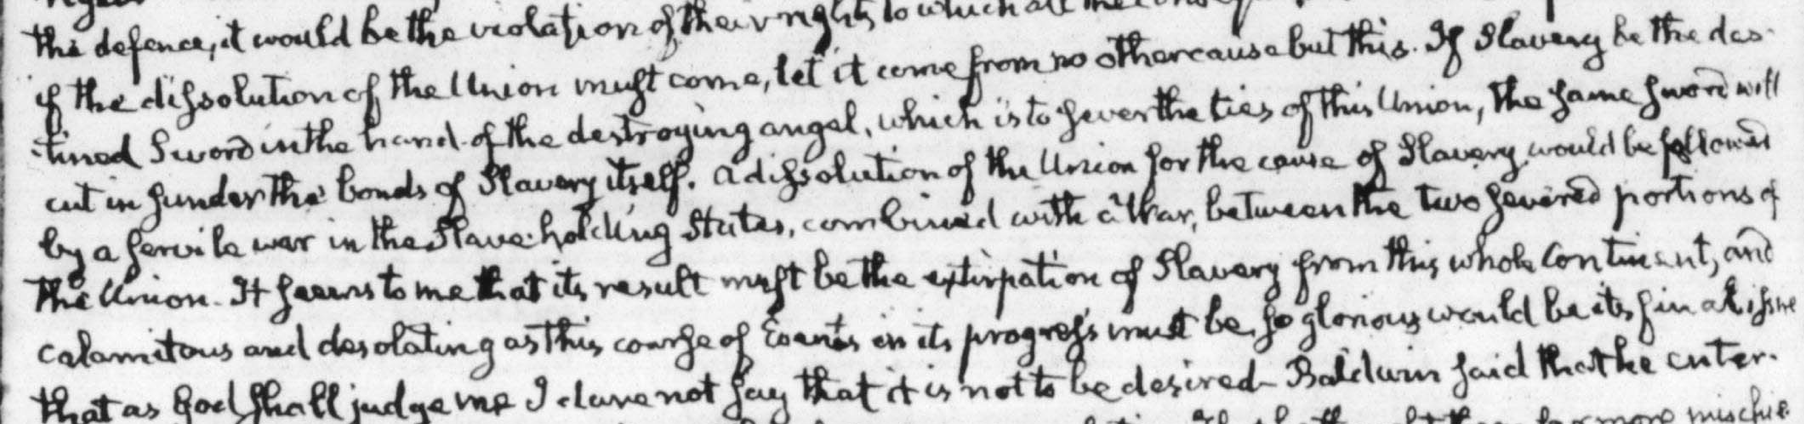 the defence, it would be the violation of their rights to which all the
if the dissolution of the Union must come, let it come from no other cause but this. If Slavery be the des-
-tined Sword in the hand of the destroying angel, which is to sever the ties of this Union, the same sword will
cut in sunder the bonds of Slavery itself. A dissolution of the Union for the cause of Slavery would be followed
by a servile war in the Slave-holding States, combined with a War, between the two severed portions of
the Union. It seems to me that its result must be the extirpation of Slavery from this whole Continent, and
calamitous and desolating as this course of Events in its progress must be, so glorious would be its final issue
that as God shall judge me I dare not say that it is not to be desired- Baldwin said that he enter-
far more mischie